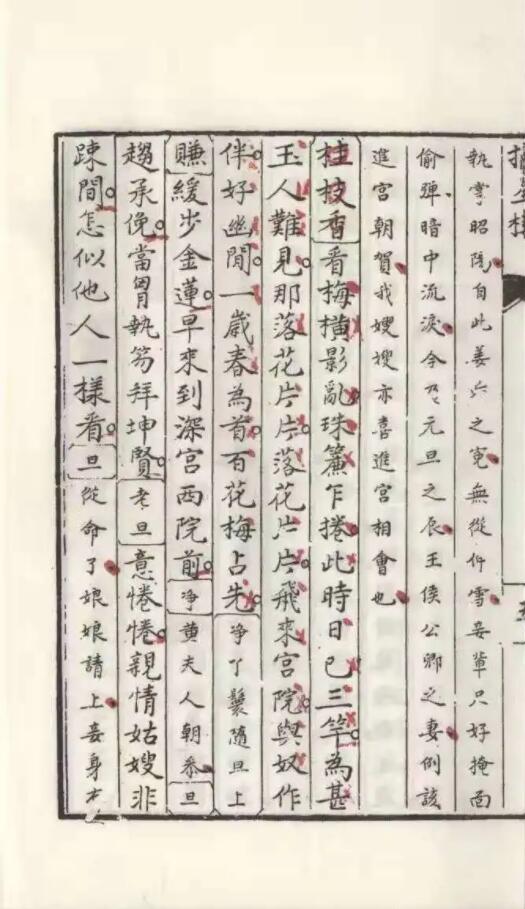 摘星樓
執掌昭陽自此姜六之冤無從伸雪妾輩只好掩面
偷彈暗中流淚今乃元旦之辰王侯公卿之妻例該
進宮朝賀我嫂嫂亦喜進宮相會也
桂枝香看梅橫影亂珠簾乍捲此時日已三竿為甚
玉人難見那落花片片落花片片飛來宮院與奴作
伴好幽閒一歲春為首百花梅占先淨丫鬟隨旦上
賺緩步金蓮早來到深宮西院前淨黃夫人朝叅旦
趨承俛當胃執笏拜坤賢老旦意惓惓親情姑嫂非
踈間怎似他人一樣看旦從命了娘娘請上妾身